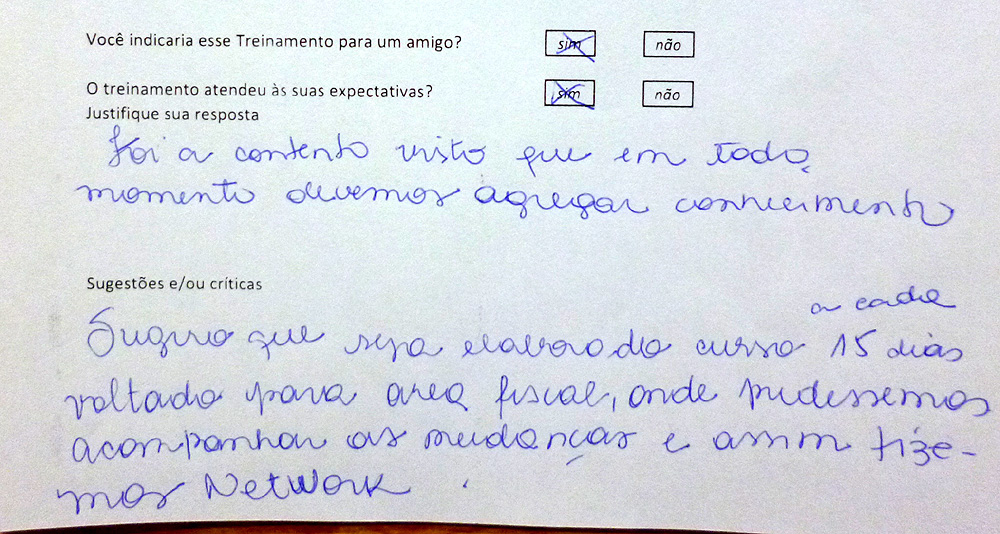 Você indicaria esse Treinamento para um amigo? sim não
O treinamento atendeu às suas expectativas? sim não
Justifique sua resposta
Foi a contento visto que em todo
momento devemos agregar conhecimento
Sugestões e/ou críticas
a cada
Sugiro que seja elaborado curso 15 dias
voltado para area fiscal, onde pudessemos
acompanhar as mudanças e assim fize-
mos Network.